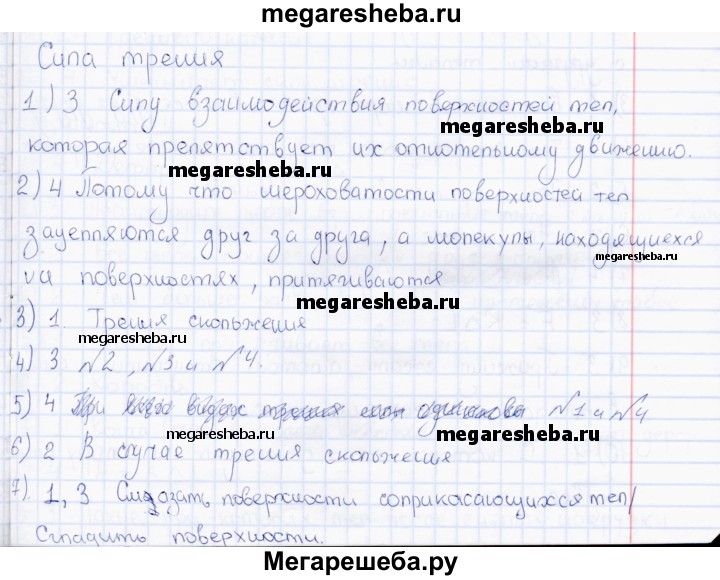 megaresheba.ru
Сила трения
1) 3 Силу взаимодействия поверхностей тел,
megaresheba.ru
которая препятствует их относительному движению.
megaresheba.ru
2) 4 Потому что шероховатости поверхностей тел
megaresheba.ru
зацепляются друг за друга, а молекулы, находящиеся
на поверхностях, притягиваются
megaresheba.ru
3) 1. Трения скольжения
megaresheba.ru
4) 3 №2, №3 и №4.
5) 4 №1 и №4
megaresheba.ru megaresheba.ru
6) 2 В случае трения скольжения
7). 1, 3 Смазать поверхности соприкасающихся тел/
megaresheba.ru
Сгладить поверхности.
Мегарешеба.ру